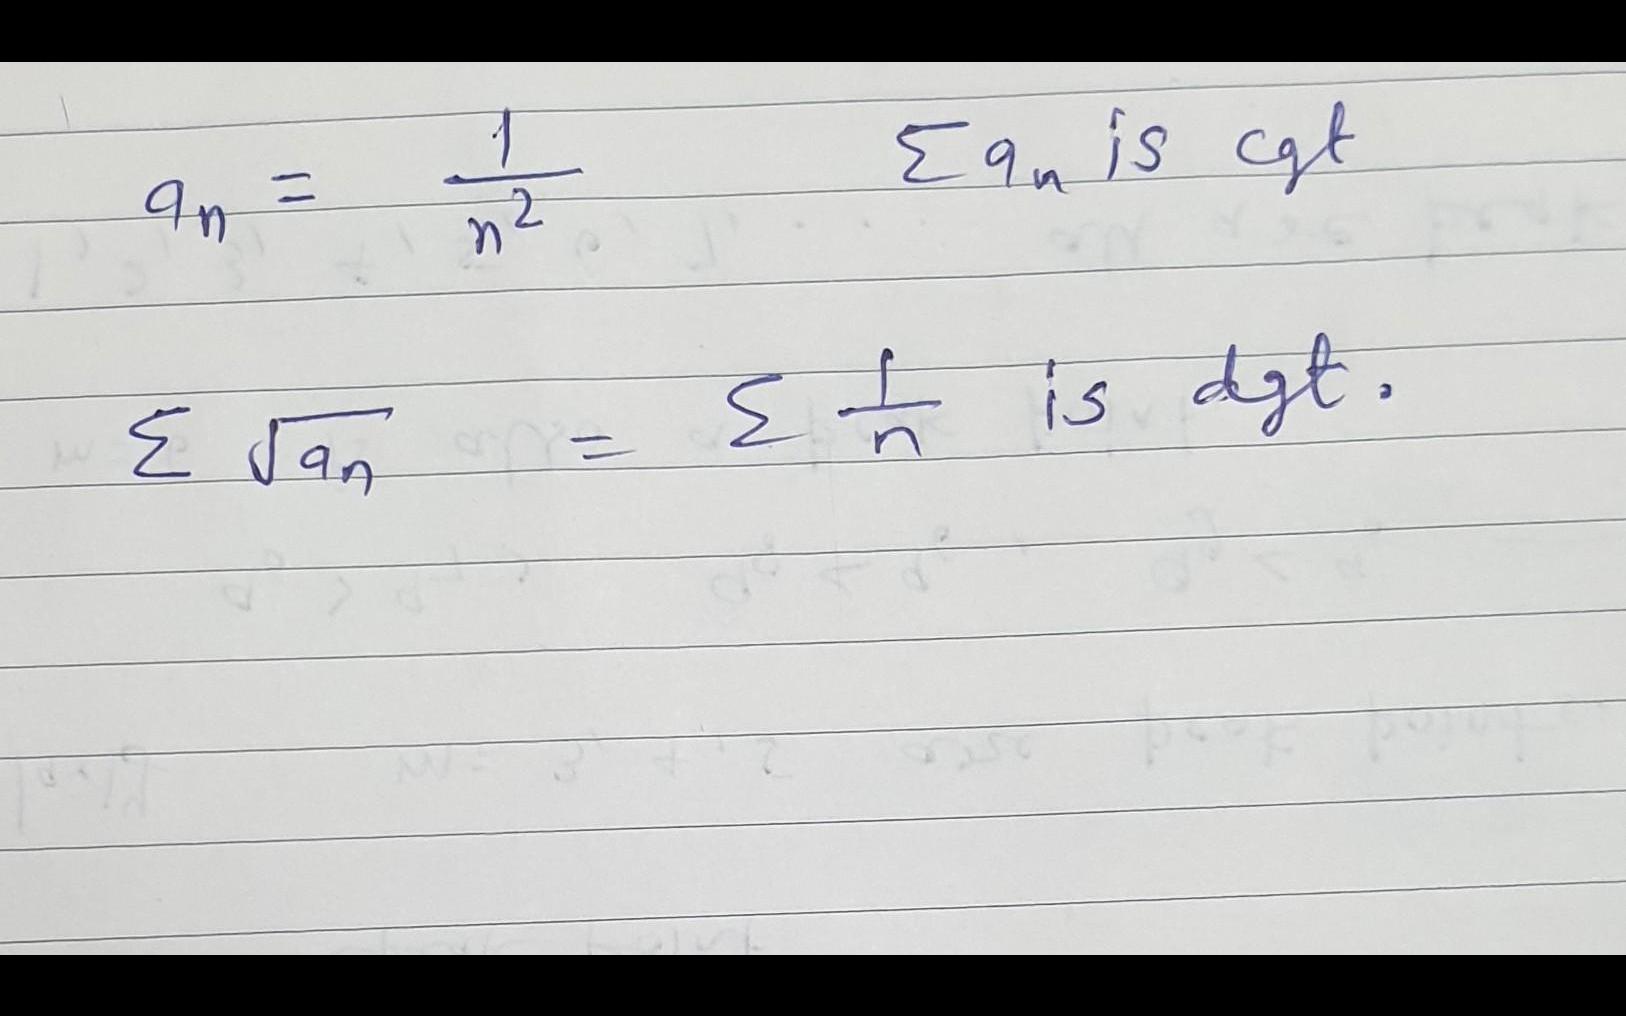 aₙ = 1/n² Σ aₙ is cgt
Σ √aₙ = Σ 1/n is dgt.